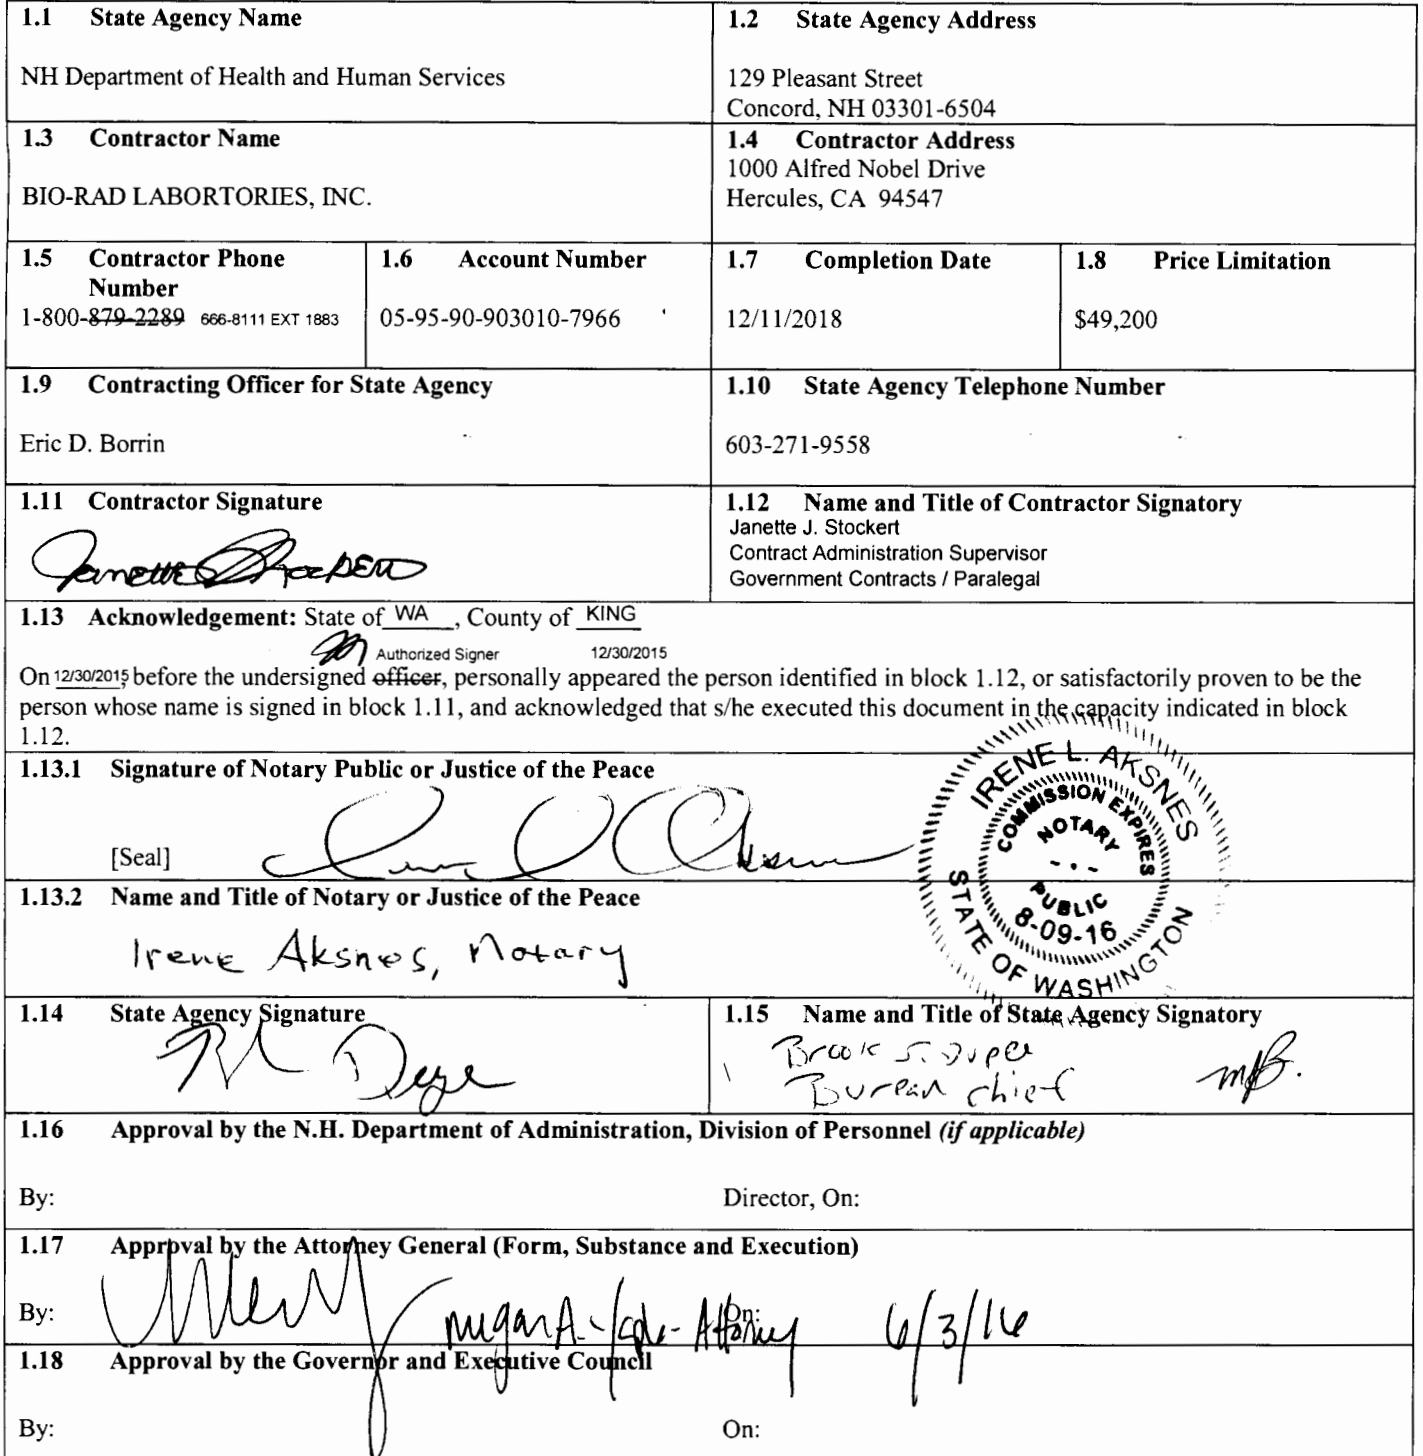 1.1 State Agency Name
NH Department of Health and Human Services
1.2 State Agency Address
129 Pleasant Street
Concord, NH 03301-6504
1.3 Contractor Name
BIO-RAD LABORTORIES, INC.
1.4 Contractor Address
1000 Alfred Nobel Drive
Hercules, CA 94547
1.5 Contractor Phone
Number
1-800-879-2289 666-8111 EXT 1883
1.6 Account Number
05-95-90-903010-7966
1.7 Completion Date
12/11/2018
1.8 Price Limitation
$49,200
1.9 Contracting Officer for State Agency
Eric D. Borrin
1.10 State Agency Telephone Number
603-271-9558
1.11 Contractor Signature
Janette Stockert
1.12 Name and Title of Contractor Signatory
Janette J. Stockert
Contract Administration Supervisor
Government Contracts / Paralegal
1.13 Acknowledgement: State of WA, County of KING
Authorized Signer 12/30/2015
On 12/30/2015, before the undersigned officer, personally appeared the person identified in block 1.12, or satisfactorily proven to be the
person whose name is signed in block 1.11, and acknowledged that s/he executed this document in the capacity indicated in block
1.12.
1.13.1 Signature of Notary Public or Justice of the Peace
[Seal]
IRENE L. AKSNES
COMMISSION EXPIRES
NOTARY
PUBLIC
8-09-16
STATE OF WASHINGTON
1.13.2 Name and Title of Notary or Justice of the Peace
Irene Aksnes, Notary
1.14 State Agency Signature
1.15 Name and Title of State Agency Signatory
Brook S. Dupee
Bureau Chief
1.16 Approval by the N.H. Department of Administration, Division of Personnel (if applicable)
By: Director, On:
1.17 Approval by the Attorney General (Form, Substance and Execution)
By: Attorney On: 6/3/16
1.18 Approval by the Governor and Executive Council
By: On: